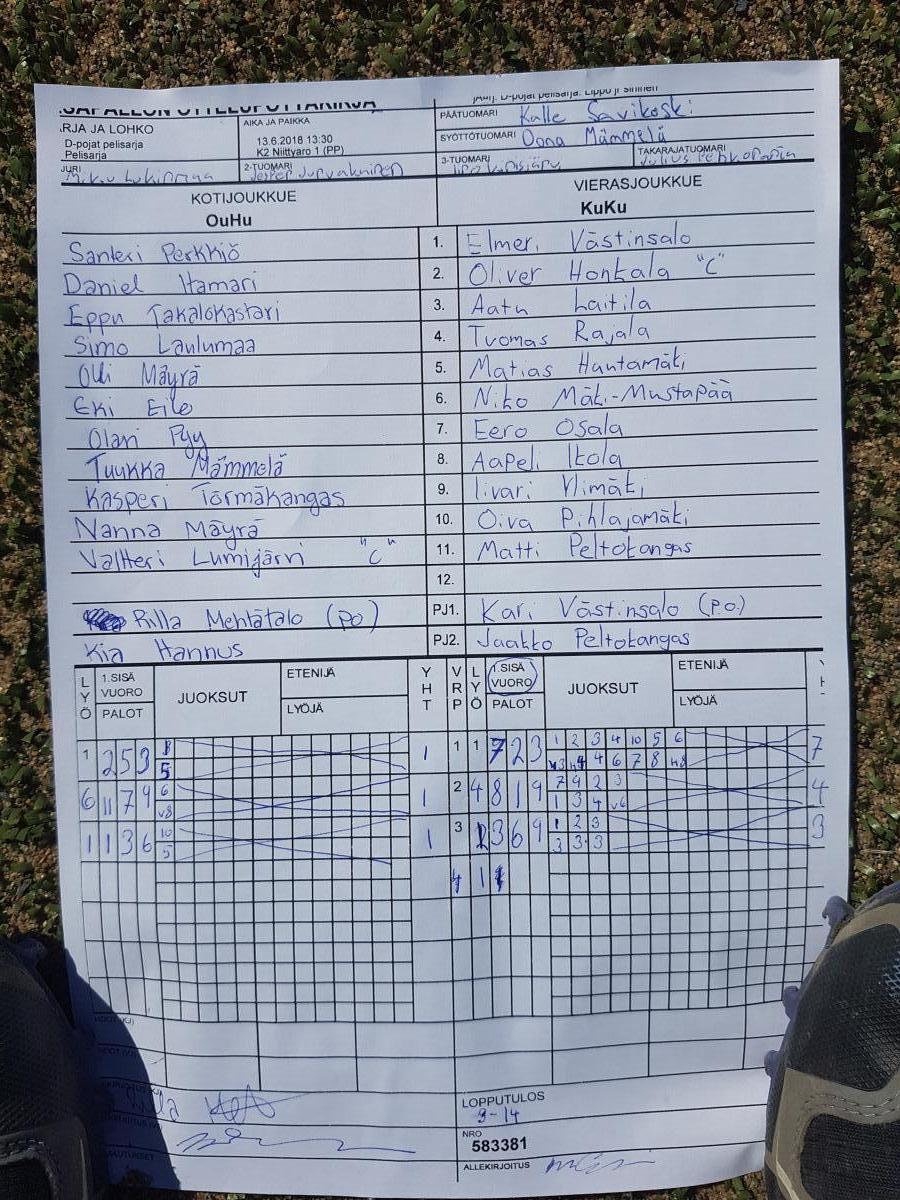 PÄÄTUOMARI Kalle Savikoski
RJA JA LOHKO
AIKA JA PAIKKA
SYÖTTÖTUOMARI Oona Mämmelä
D-pojat pelisarja
Pelisarja
13.6.2018 13:30
K2 Niittyaro 1 (PP)
3-TUOMARI
TAKARAJATUOMARI
JURI
2-TUOMARI
KOTIJOUKKUE
VIERASJOUKKUE
OuHu
KuKu
Santeri Perkkiö 1. Elmeri Västinsalo
Daniel Itamari 2. Oliver Honkala "C"
Eppu Takalokastari 3. Aatu Laitila
Simo Laulumaa 4. Tuomas Rajala
Olli Mäyrä 5. Matias Hautamäki
Eki Eilo 6. Niko Mäki-Mustapää
Olavi Pyy 7. Eero Osala
Tuukka Mämmelä 8. Aapeli Ikola
Kasperi Törmäkangas 9. Iivari Ylimäki
Nanna Mäyrä 10. Oiva Pihlajamäki
Valtteri Lumijärvi "C" 11. Matti Peltokangas
12.
Rilla Mehtätalo (po) PJ1. Kari Västinsalo (p.o.)
Kia Hannus PJ2. Jaakko Peltokangas
LYÖ 1.SISÄ VUORO PALOT JUOKSUT ETENIJÄ LYÖJÄ YHT VRP LYÖ 1.SISÄ VUORO PALOT JUOKSUT ETENIJÄ LYÖJÄ
1 2 5 3 5 1 1 1 7 2 3 1 2 3 4 10 5 6 7
4 6 7 8
6 11 7 9 6 v8 1 2 4 8 1 9 7 9 2 3 4
1 3 4 v6
1 1 3 6 10 5 1 3 3 6 9 1 2 3 3
3 3 3
4 1
LOPPUTULOS
3-14
NRO
583381
ALLEKIRJOITUS